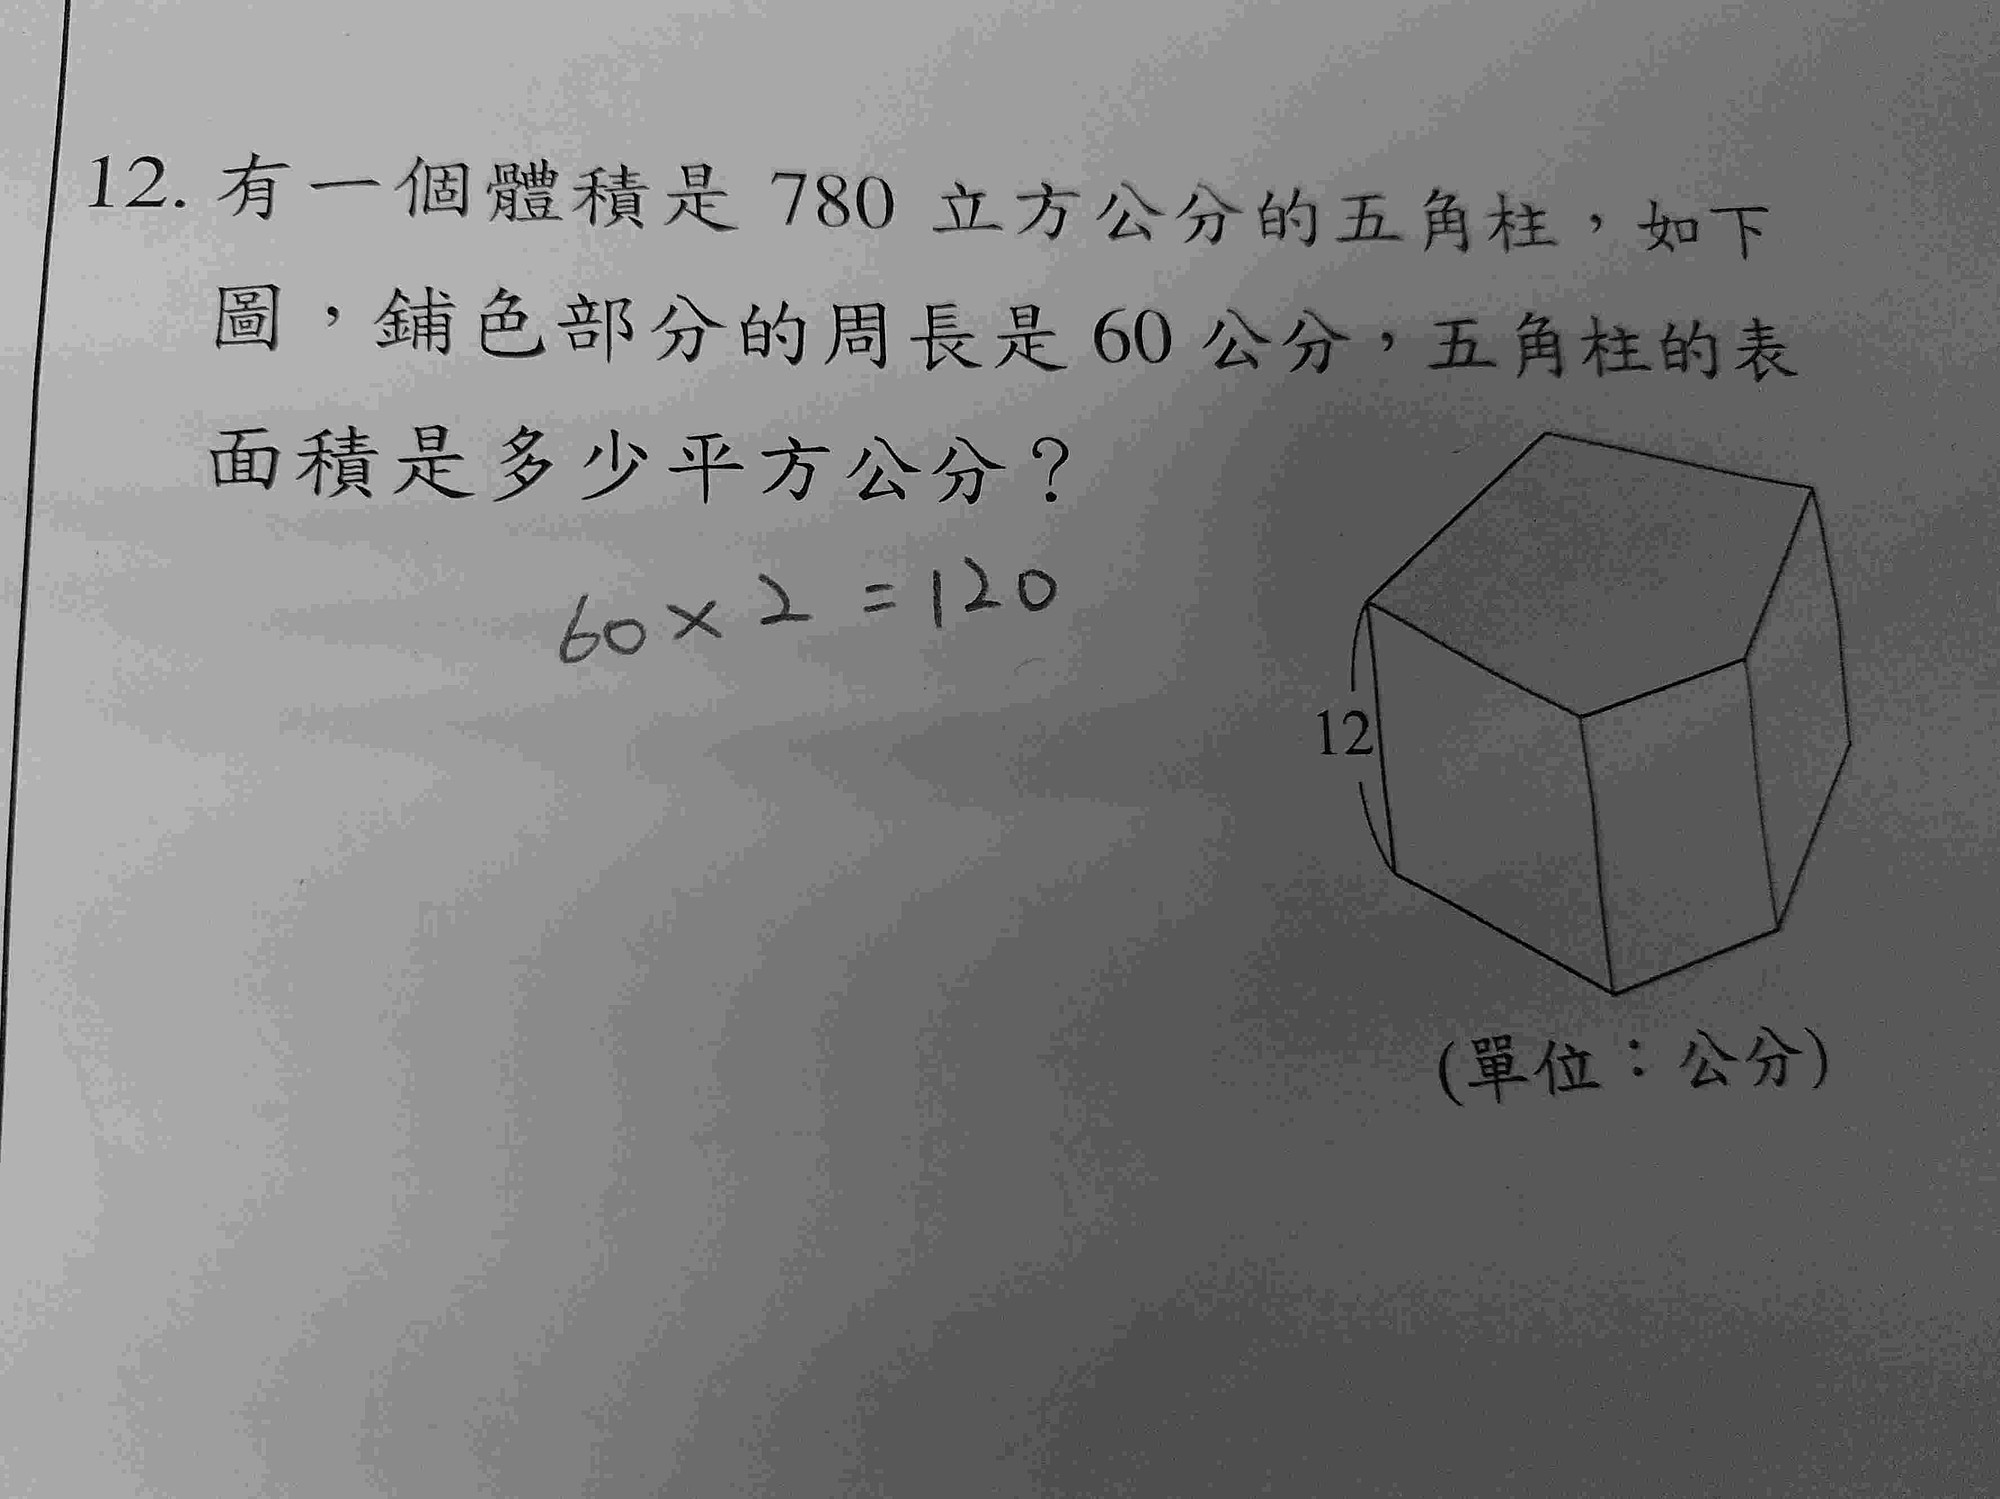 12. 有一個體積是 780 立方公分的五角柱，如下
圖，鋪色部分的周長是 60 公分，五角柱的表
面積是多少平方公分？
60 × 2 = 120
12
(單位：公分)